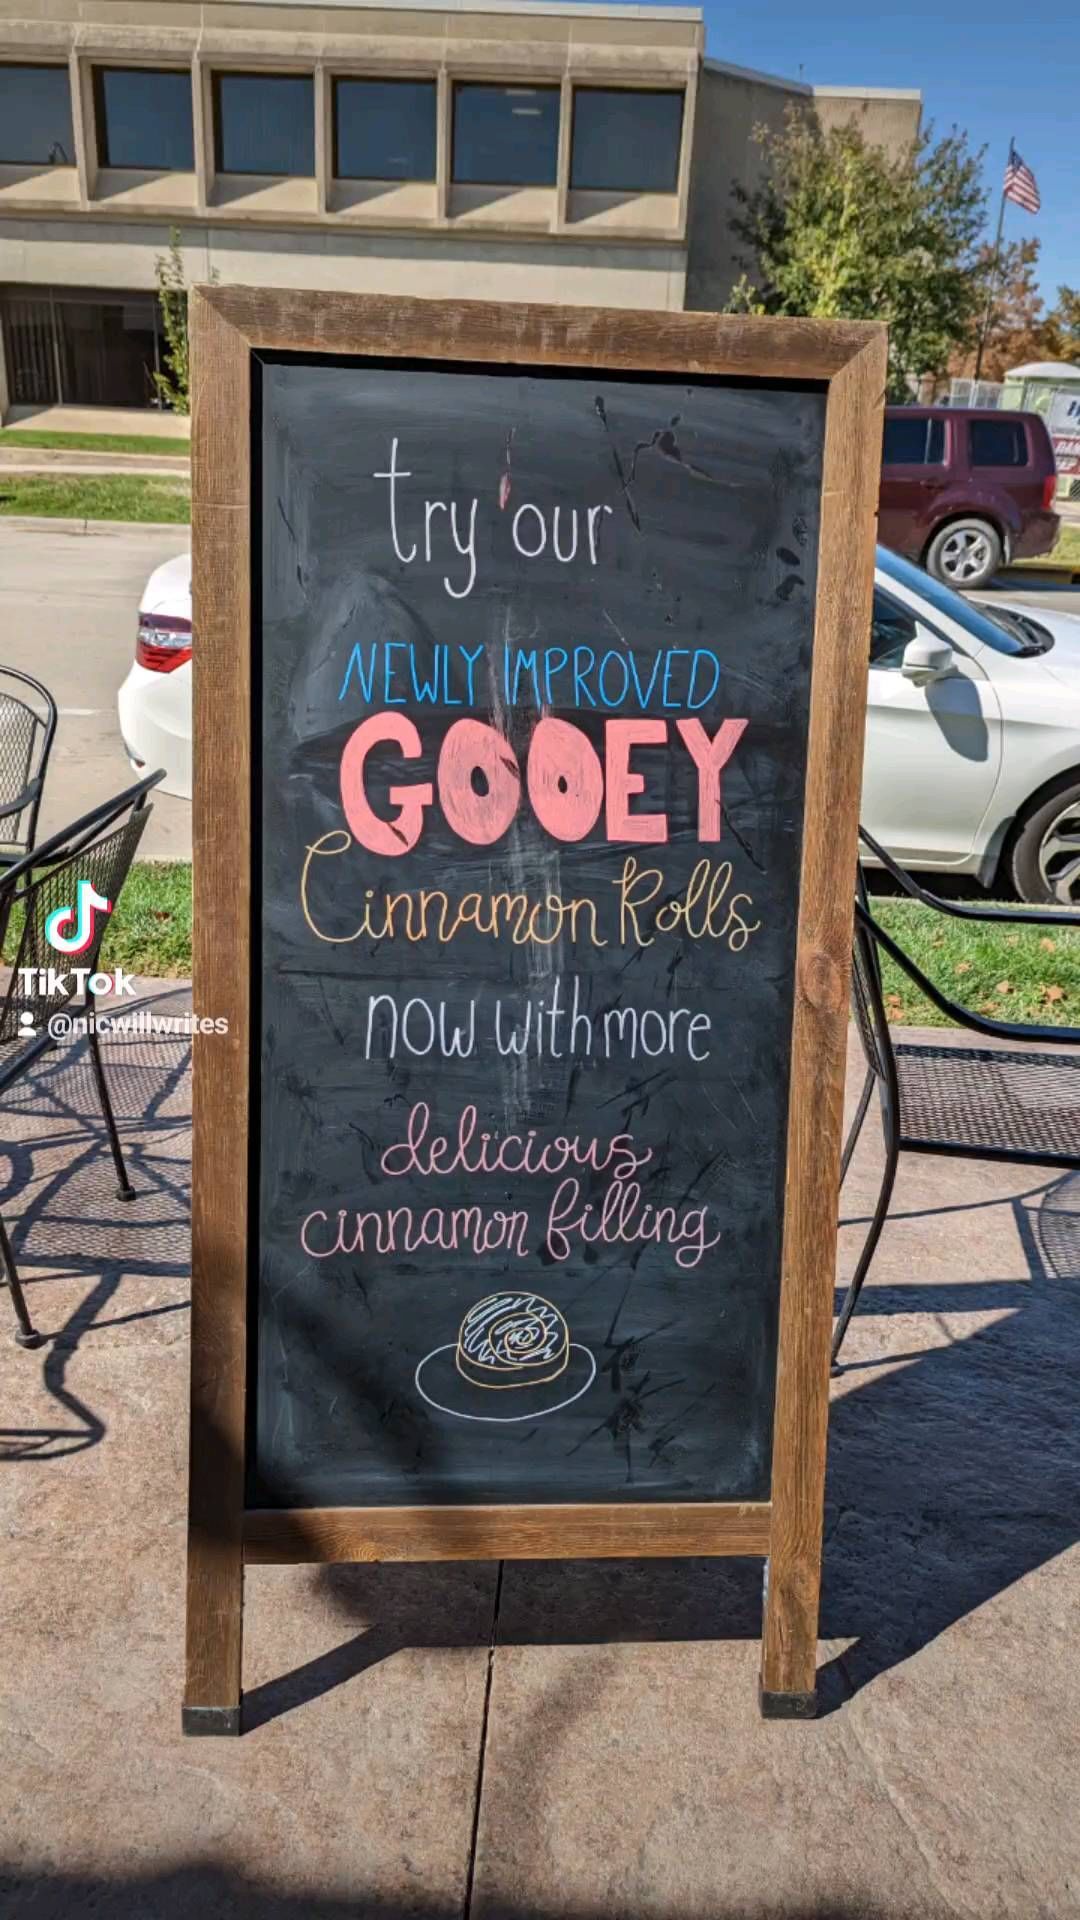 try our
NEWLY IMPROVED
GOOEY
Cinnamon Rolls
now with more
delicious
cinnamon filling
TikTok
@nicwillwrites